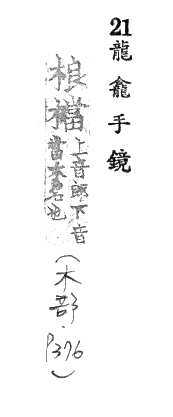 21龍龕手鏡
桹檔上音郎下音
當木名也
(木部·P376)